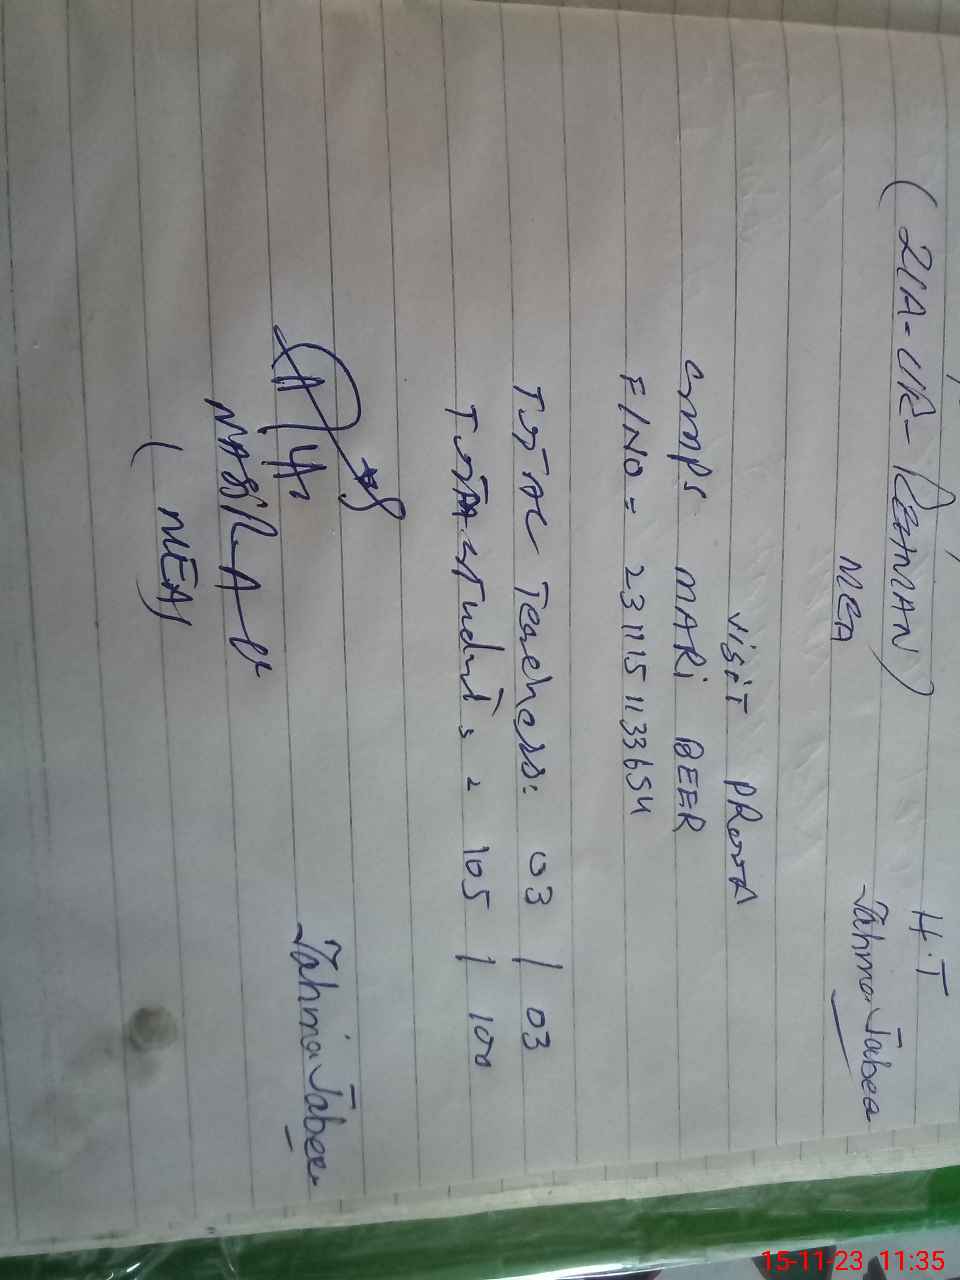 H.T
(ZIA-UR-REHMAN)
MEA
Tahmina Jabee
VISIT PROOF
GMPS MARI BEER
F/NO = 231115 1133654
Total Teachers: 03 / 03
Total Students = 105 / 100
Tahmina Jabee
NASIR
(MEA)
15-11-23 11:35